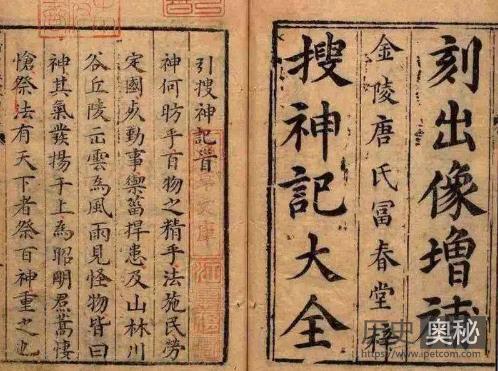 刻出像增補
金陵唐氏冨春堂梓
搜神記大全
引搜神記首
神何昉乎百物之精乎法施民勞
定國死勤事禦菑捍患及山林川
谷丘陵出雲為風雨見怪物皆曰
神其氣發揚于上為昭明焄蒿悽
愴祭法有天下者祭百神重之也
文庫
历史奥秘
https://www.ipetcom.com